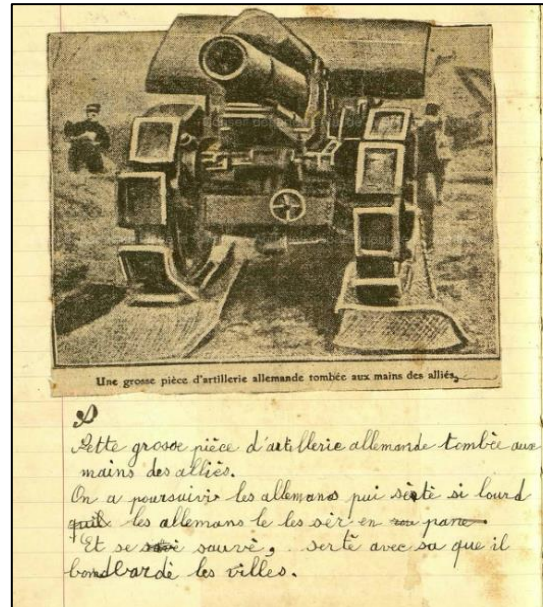 Une grosse pièce d'artillerie allemande tombée aux mains des alliés,
Cette grosse pièce d'artillerie allemande tombée aux
mains des alliés.
On a poursuivir les allemans pui sètè si lourd
quil les allemans le les sèr en pane
Et se sauvè, sertè avec sa que il
bombardè les villes.